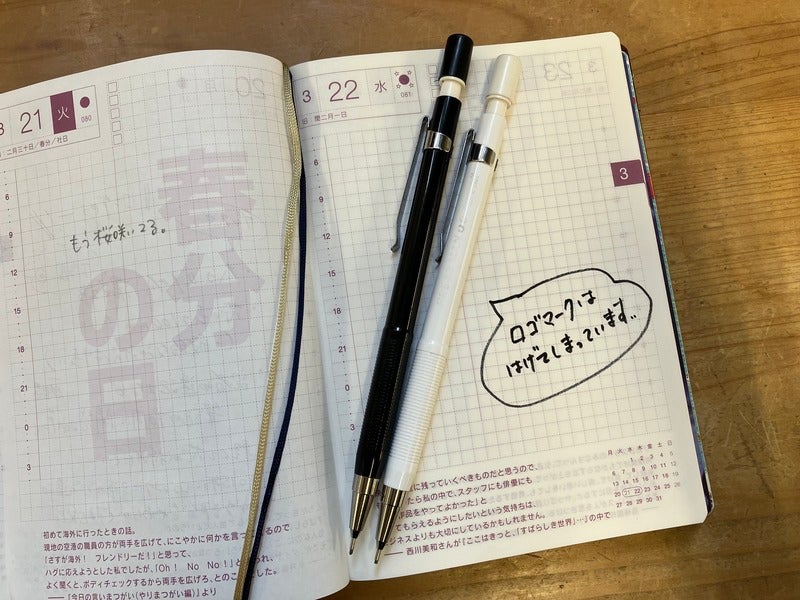 3 21 火 080
二月三十日／春分／社日
9
12
15
18
21
0
3
もう桜咲いてる。
春分
の日
初めて海外に行ったときの話。
現地の空港の職員の方が両手を広げて、にこやかに何かを言っ
るので
「さすが海外！ フレンドリーだ！」と思って、
ハグに応えようとした私でしたが、「Oh! No No!」と
られ、
よく聞くと、ボディチェックするから両手を広げろ、とのこ
した。
——『今日の言いまつがい(やりまつがい編)』より
3 22 水 081
閏二月一日
23
3
6
9
12
15
18
21
0
3
3
ロゴマークは
はげてしまっています。
に残っていくべきものだと思うので、
たら私の中で、スタッフにも俳優にも
作品をやってよかった」と
てもらえるようにしたいという気持ちは、
ジネスよりも大切にしているかもしれません。
—— 西川美和さんが『ここはきっと、「すばらしき世界」…』の中で
月 火 水 木 金 土 日
1 2 3 4 5
6 7 8 9 10 11 12
13 14 15 16 17 18 19
20 21 22 23 24 25 26
27 28 29 30 31